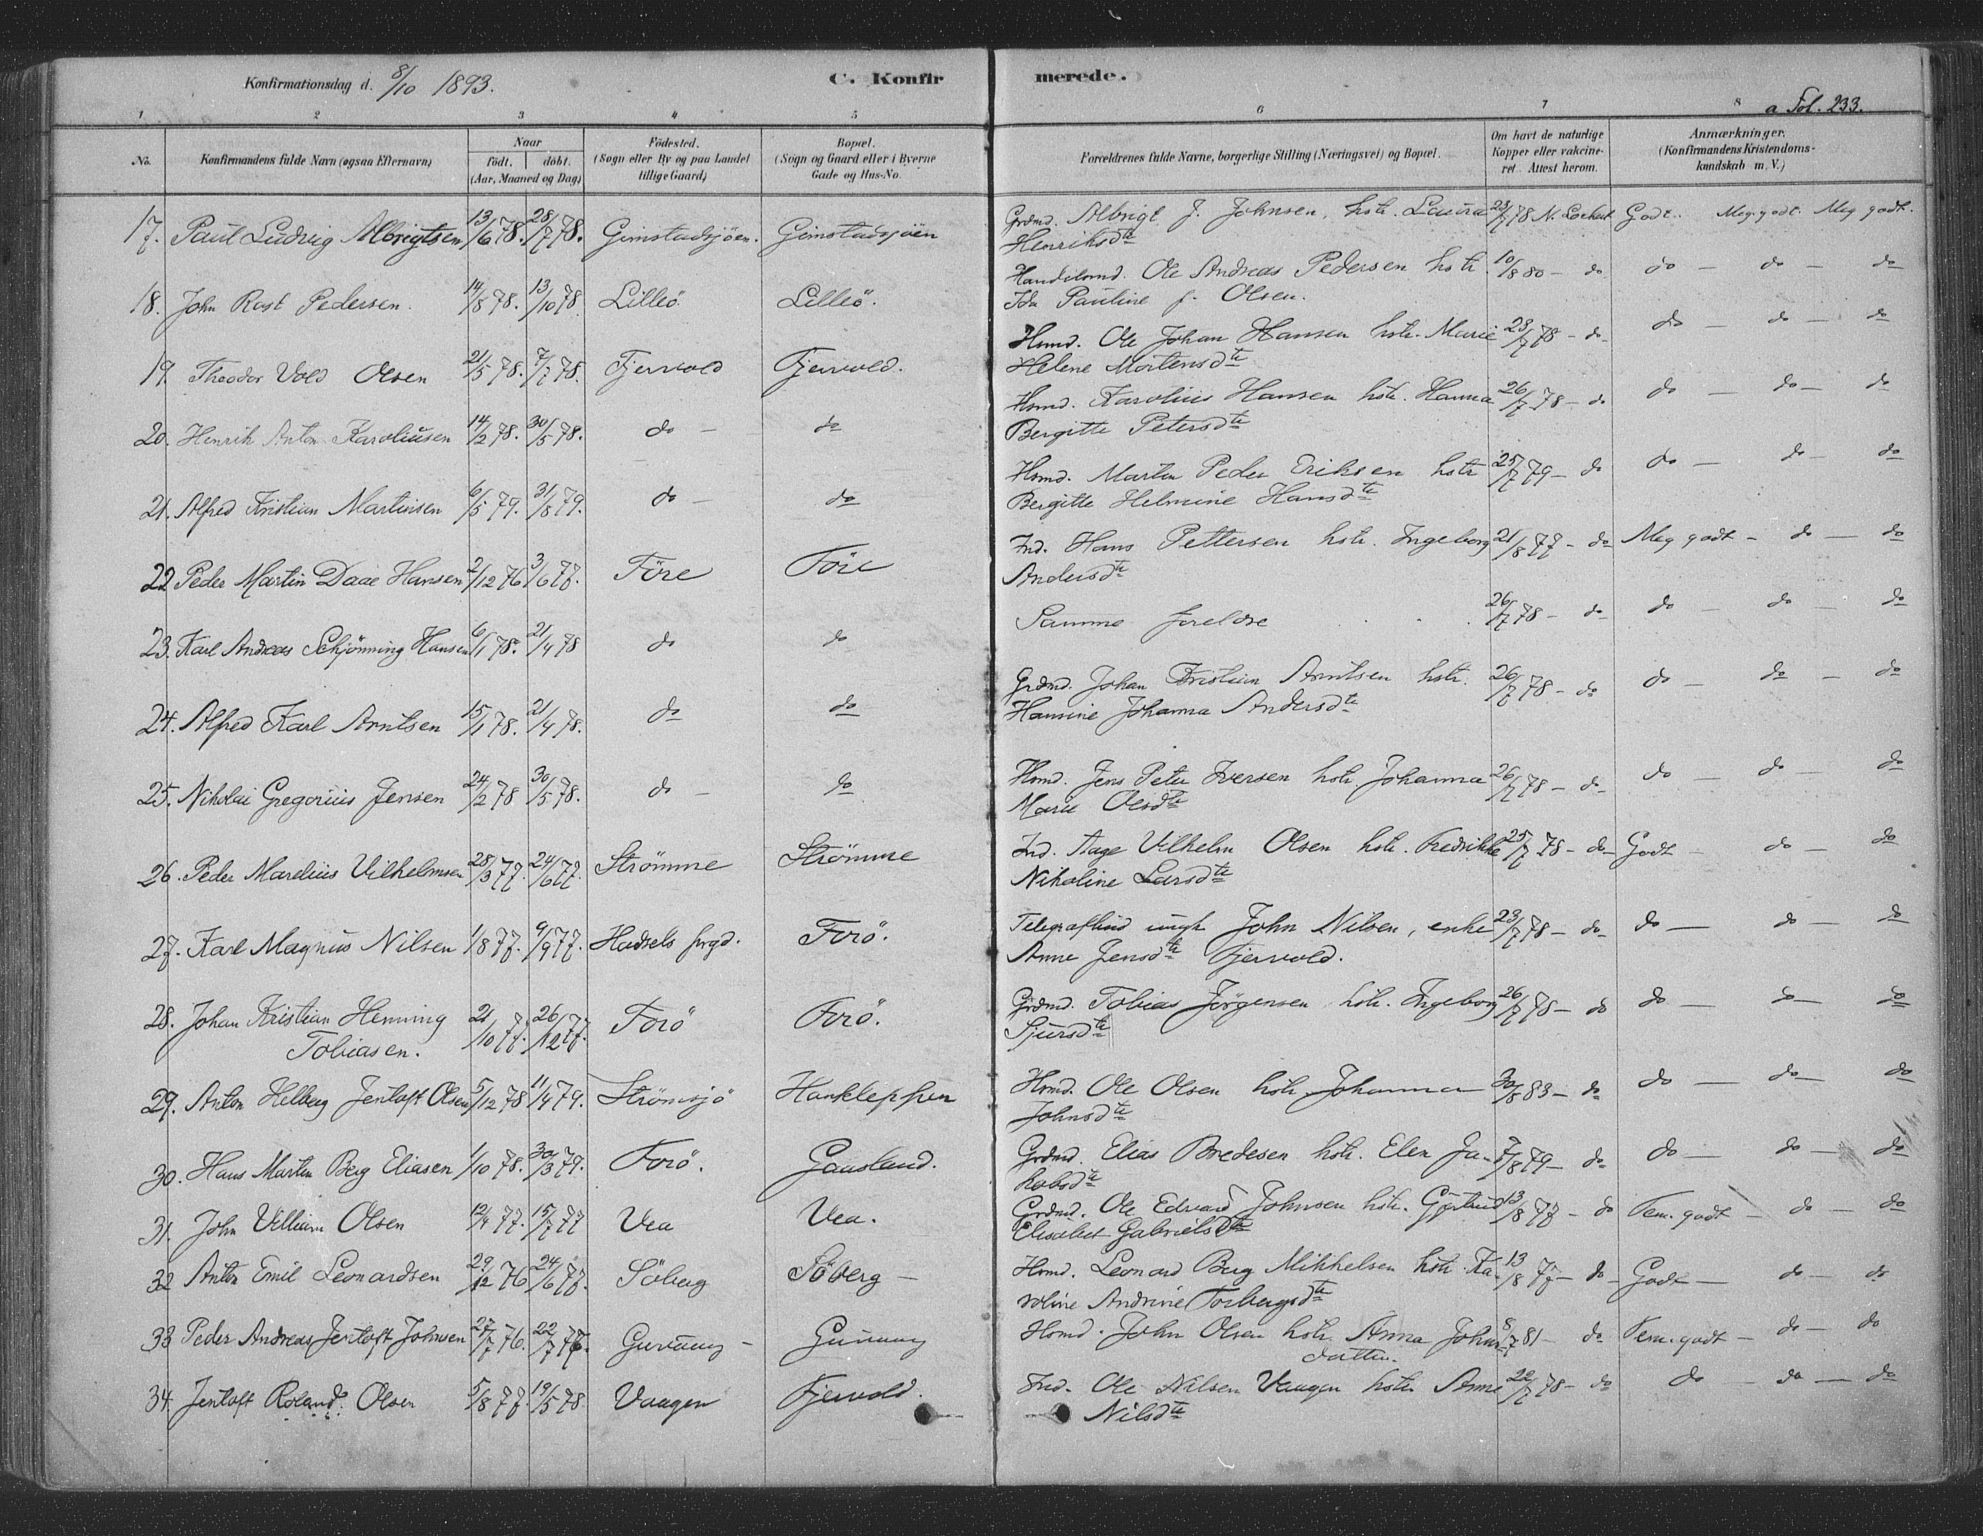 Konfirmationsdag d. 8/10 1893. C. Konfirmerede. a Fol. 233.
1 2 3 4 5 6 7 8
No. Konfirmandens fulde Navn (ogsaa Efternavn) Naar født. døbt. (Aar, Maaned og Dag) Fødested. (Sogn eller By og paa Landet tillige Gaard) Bopæl. (Sogn og Gaard eller i Byerne Gade og Hus-No. Forældrenes fulde Navne, borgerlige Stilling (Næringsvei) og Bopæl. Om havt de naturlige Kopper eller vakcineret. Attest herom. Anmærkninger. (Konfirmandens Kristendomskundskab m. V.)
17. Paul Ludvig Albrigtsen 13/6 78. 28/7 78. Gimstadsjøen. Gimstadsjøen Grdmd. Albrigt J. Johnsen, hstr. Laura 23/7 78 N. Lockert Godt. Meg. godt. Meg godt.
Henriksdtr
18. John Rost Pedersen. 14/8 78. 13/10 78. Lilleö Lilleö. Handelsmd. Ole Andreas Pedersen hstr. 10/8 80 - do do - do - do
Ida Pauline f. Olsen.
19. Theodor Vold Olsen 21/5 78. 7/7 78. Fjervold Fjervold. Hsmd. Ole Johan Hansen hstr. Marie 23/7 78 - do do - do - do
Helene Mortensdtr
20. Henrik Anton Karoliusen 14/2 78. 30/5 78. do - do Hsmd. Karolius Hansen hstr. Hanna 26/7 78 - do do - do - do
Bergitte Petersdtr
21. Alfred Kristian Martinsen 6/5 79. 31/8 79. do - do Hsmd. Martin Peder Eriksen hstr 25/7 79 - do do - do - do
Bergitte Helmine Hansdtr
22 Peder Martin Daae Hansen 2/12 76 3/6 77. Före Före Ind. Hans Pettersen hstr. Ingeborg 21/8 77 - do Meg godt - do - do
Andersdtr
23. Karl Andreas Schjönning Hansen 6/1 78. 21/4 78 do do Samme foreldre 26/7 78 - do do - do - do
24. Alfred Karl Arntsen 15/1 78. 21/4 78. do do Grdmd. Johan Kristian Arntsen hstr. 26/7 78 - do do - do - do
Hansine Johanna Andersdtr
25. Nikolai Gregorius Jensen 24/2 78 30/5 78. do - do Hsmd. Jens Peter Iversen hstr. Johanna 26/7 78 - do do - do - do
Marie Olsdtr
26. Peder Marelius Vilhelmsen 28/3 77. 24/6 77. Strömme Strömme Ind. Aage Vilhelm Olsen hstr. Fredrikke 25/7 78 - do Godt - do - do
Nikoline Larsdtr
27. Karl Magnus Nilsen 1/8 77. 9/9 77. Hadsels prgd. Forö. Telegrafbud ungk John Nilsen, enke 23/7 78 - do do - do - do
Anne Jensdtr Fjervold.
28. Johan Kristian Henning 21/10 77. 26/12 77. Forö Forö. Grdmd. Tobias Jörgensen hstr. Ingeborg 26/7 78 - do do - do - do
Tobiasen. Sjursdtr
29. Anton Helberg Jentoft Olsen 5/12 78 11/4 79. Strömsjö Haukleppen Hsmd. Ole Olsen hstr. Johanna 30/8 83 - do do - do - do
Johnsdtr
30. Hans Martin Berg Eliasen 1/10 78. 30/3 79. Forö. Gausland. Grdmd. Elias Bredesen hstr. Elen Ja- 7/8 79 - do do - do - do
kobsdtr
31. John Villiam Olsen 12/4 77. 15/7 77 Vea Vea. Grdmd. Ole Edvard Johnsen hstr. Gjertrud 13/8 77 - do Tem. godt - do - do
Elisabet Gabrielsdtr
32 Anton Emil Leonardsen 29/12 76 24/6 77. Söberg Söberg - Hsmd. Leonard Berg Mikkelsen hstr. Ka- 13/8 77 - do - Godt - do - do
roline Andrine Torbergsdtr
33 Peder Andreas Jentoft Johnsen 27/7 76. 22/7 77. Guvaag - Guvaag Hsmd. John Olsen hstr. Anna Johns- 8/7 81 - do Tem. godt - do - do
datter.
34. Jentoft Roland Olsen 5/8 77. 19/5 78 Vaagen Fjervold. Ind. Ole Nilsen Vaagen hstr. Anne 22/7 78 - do do - do - do
Nilsdtr